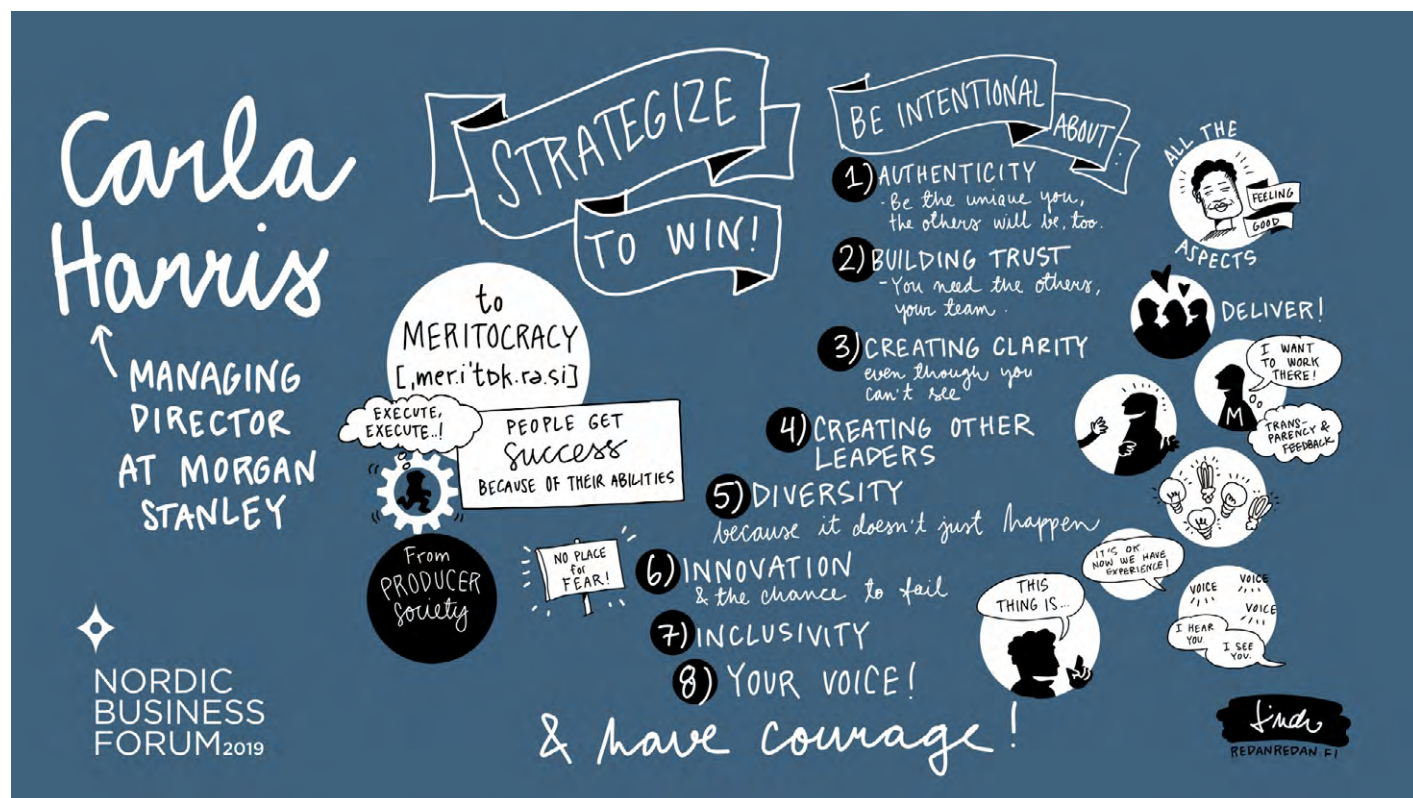 Carla
Harris
MANAGING
DIRECTOR
AT MORGAN
STANLEY
NORDIC
BUSINESS
FORUM2019
STRATEGIZE
TO WIN!
to
MERITOCRACY
[ˌmer.iˈtɒk.rə.si]
EXECUTE,
EXECUTE..!
PEOPLE GET
success
BECAUSE OF THEIR ABILITIES
From
PRODUCER
society
BE INTENTIONAL
ABOUT:
1) AUTHENTICITY
- Be the unique you,
the others will be, too.
2) BUILDING TRUST
- You need the others,
your team.
3) CREATING CLARITY
even though you
can't see
4) CREATING OTHER
LEADERS
5) DIVERSITY
because it doesn't just happen
NO PLACE
for
FEAR!
6) INNOVATION
& the chance to fail
7) INCLUSIVITY
8) YOUR VOICE!
& have courage!
ALL THE
ASPECTS
FEELING
GOOD
DELIVER!
I WANT
TO WORK
THERE!
M
TRANS-
PARENCY &
FEEDBACK
IT'S OK
NOW WE HAVE
EXPERIENCE!
THIS
THING IS...
VOICE
VOICE
VOICE
I HEAR
YOU.
I SEE
YOU.
REDANREDAN.FI